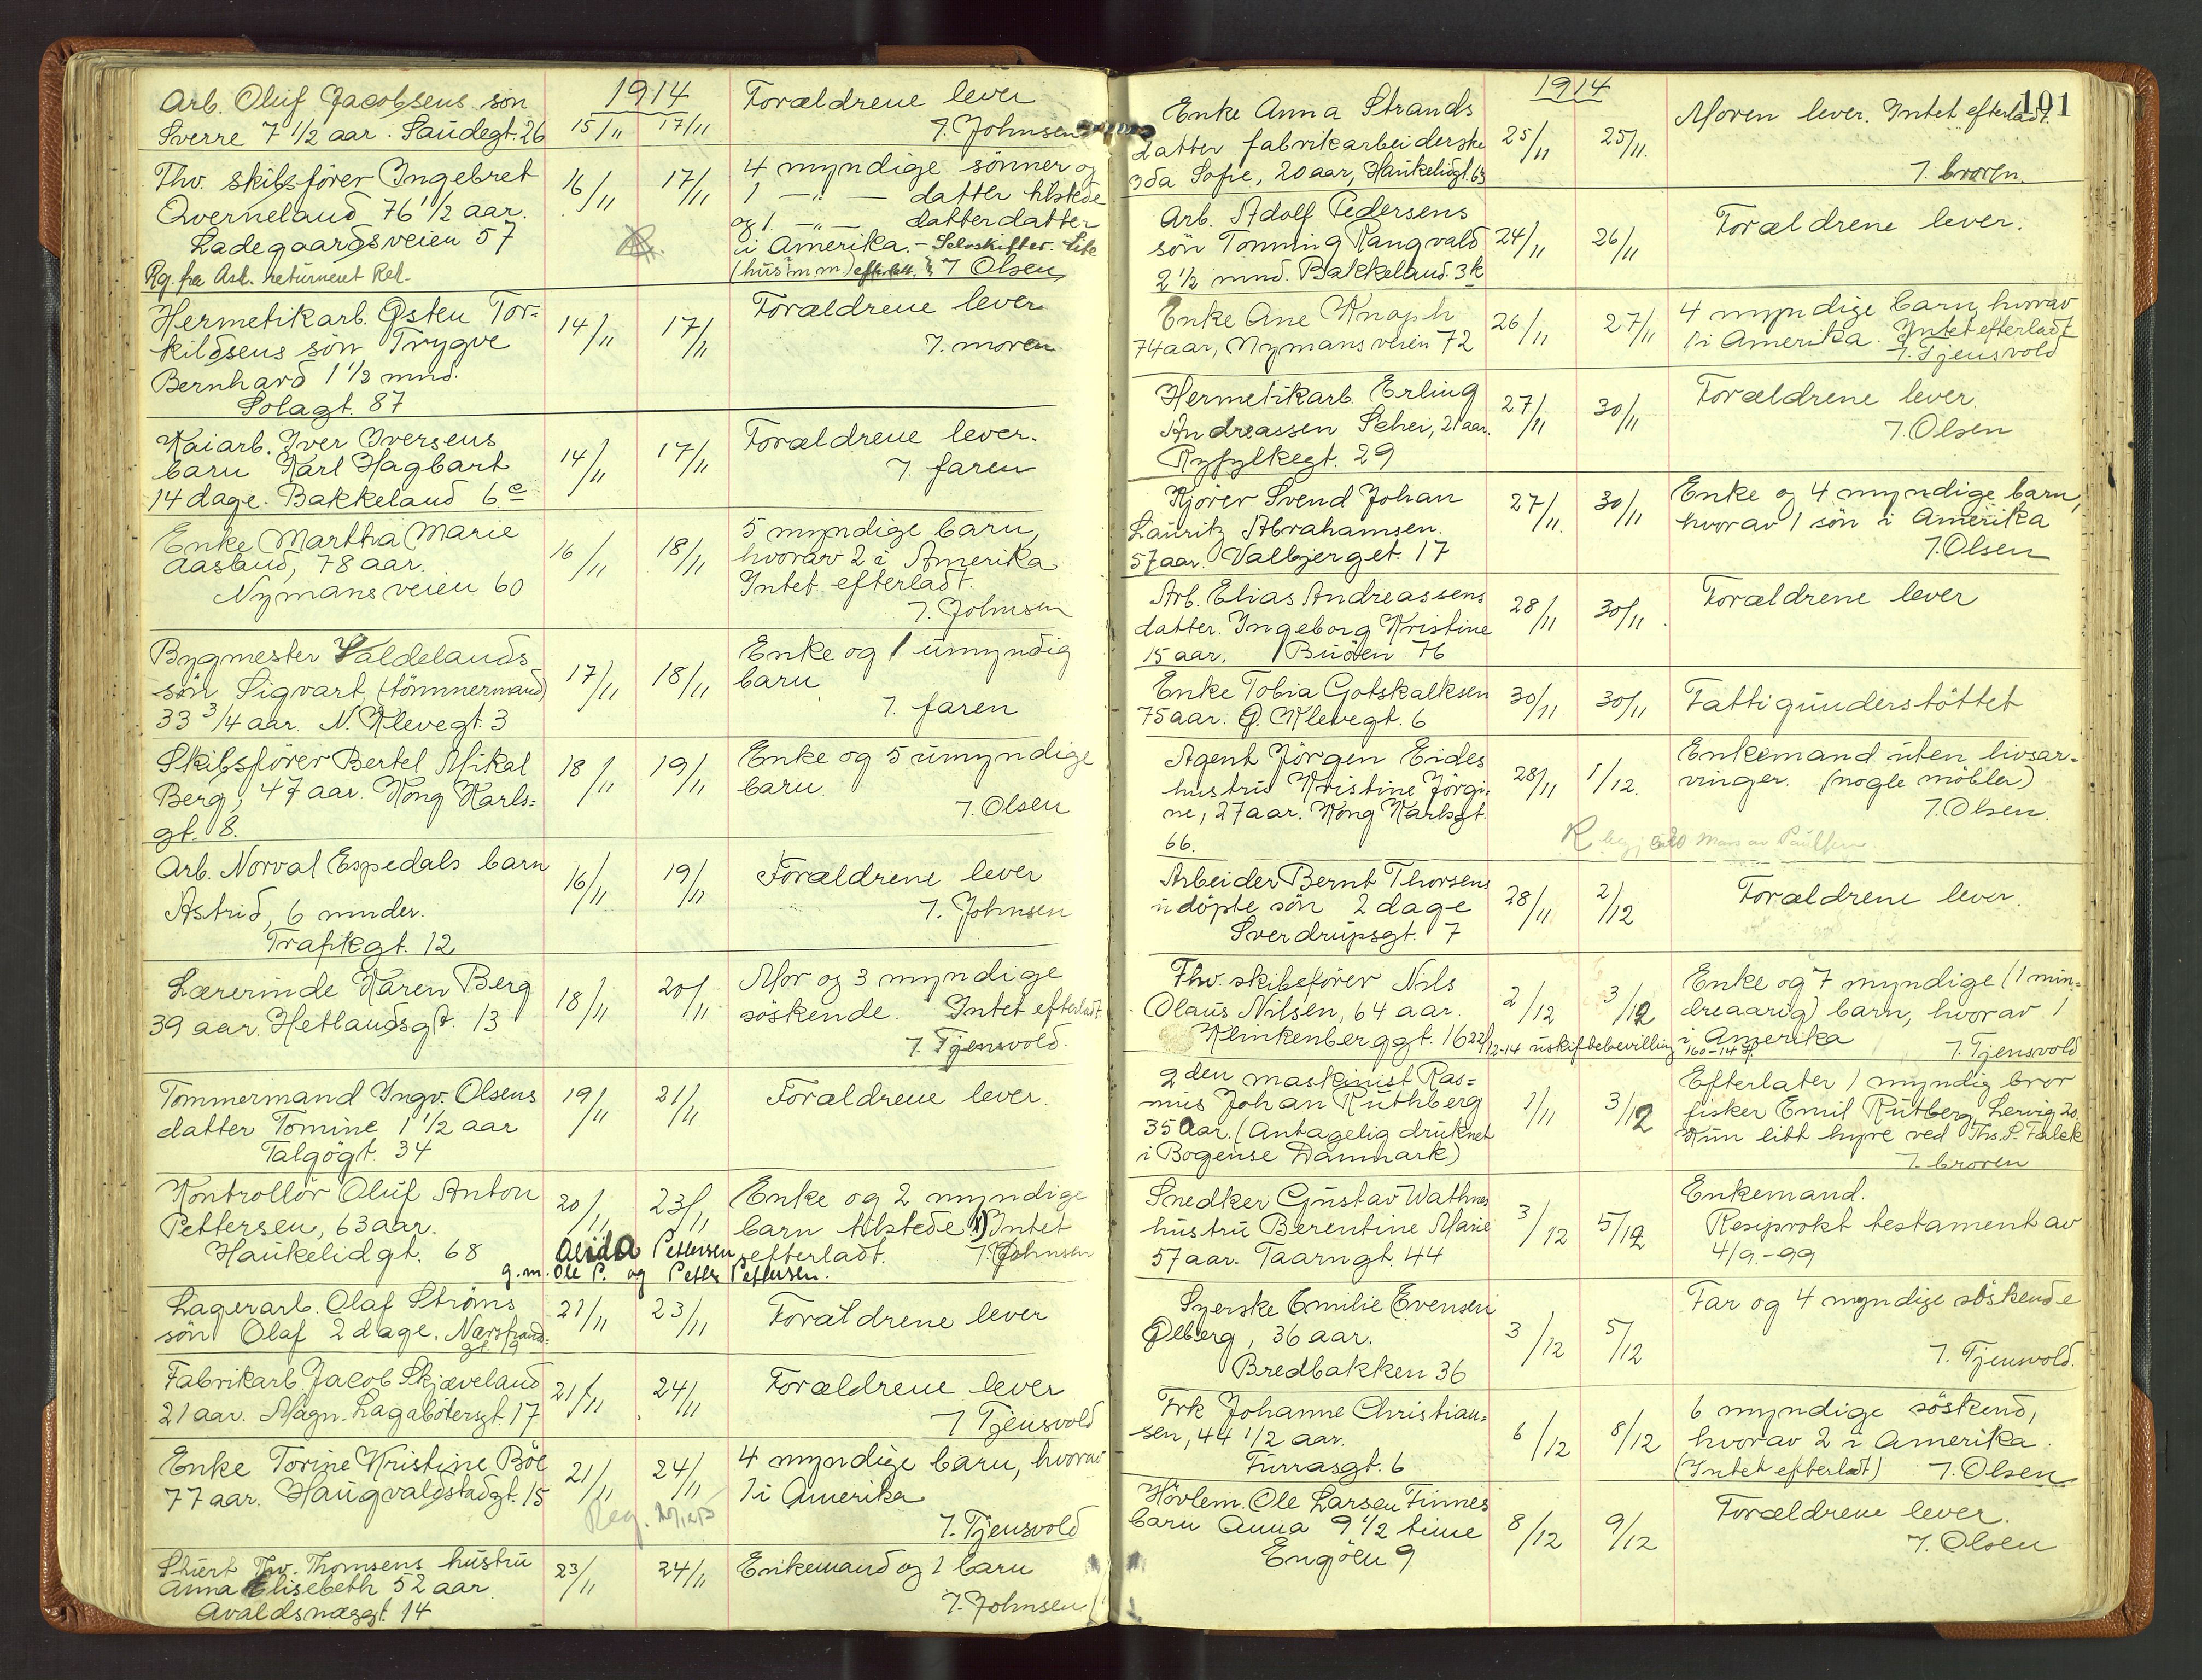 1914
Arb. Oluf Jacobsens søn
Sverre 7 1/2 aar. Saudegt. 26
15/11 17/11
Forældrene lever
J. Johnsen
Fhv. skibsfører Ingebret
Qverneland 76 1/2 aar.
Ladegaardsveien 57
16/11 17/11
4 myndige sønner og
1 —"— datter tilstede
og 1 —"— datterdatter
i Amerika. – Selvskifter.
J. Olsen
Hermetikarb. Østen Tor=
kildsens søn Trygve
Bernhard 1 1/2 mnd.
Solagt. 87
14/11 17/11
Forældrene lever
J. moren
Kaiarb. Iver Iversens
barn Karl Hagbart
14 dage. Bakkeland 6e
14/11 17/11
Forældrene lever.
J. faren
Enke Martha Marie
Aasland, 78 aar.
Nymansveien 60
16/11 18/11
5 myndige barn,
hvorav 2 i Amerika
Intet efterladt.
J. Johnsen
Bygmester Valdelands
søn Sigvart (tømmermand)
33 3/4 aar. N. Klevegt. 3
17/11 18/11
Enke og 1 umyndig
barn
J. faren
Skibsfører Bertel Mikal
Berg, 47 aar. Kong Karls=
gt. 8.
18/11 19/11
Enke og 5 umyndige
barn.
J. Olsen
Arb. Norval Espedals barn
Astrid, 6 mnder.
Trafikgt. 12
16/11 19/11
Forældrene lever
J. Johnsen
Lærerinde Karen Berg
39 aar. Hetlandsgt. 13
18/11 20/11
Mor og 3 myndige
søskende. Intet efterladt.
J. Tjensvold.
Tømmermand Ingv. Olsens
datter Tomine 1 1/2 aar
Talgøgt. 34
19/11 21/11
Forældrene lever.
Kontrollør Oluf Anton
Pettersen, 63 aar.
Haukelidgt. 68
20/11 23/11
Enke og 2 myndige
barn tilstede 1) Intet
efterladt. J. Johnsen
Alida Pettersen
g.m. Ole P. og Petter Pettersen.
Lagerarb. Olaf Strøms
søn Olaf 2 dage. Nærstrand=
gt. 19
21/11 23/11
Forældrene lever
Fabrikarb. Jacob Skjæveland
21 aar. Magn. Lagabøtersgt. 17
21/11 24/11
Forældrene lever
J. Tjensvold
Enke Torine Kristine Bøe
77 aar. Haugvaldstadgt. 15
21/11 24/11
4 myndige barn, hvorav
1 i Amerika
J. Tjensvold
Reg.
Stuert Thv. Thomsens hustru
Anna Elisebeth 52 aar
Avaldsnæsgt. 14
23/11 24/11
Enkemand og 1 barn
J. Johnsen
101
1914
Enke Anna Strands
datter fabrikarbeiderske
Ida Sofie, 20 aar, Haukelidgt. 63
25/11 25/11.
Moren lever. Intet efterladt.
J. broren.
Arb. Adolf Pedersens
søn Tonning Rangvald
2 1/2 mnd. Bakkeland. 3k
24/11 26/11
Forældrene lever.
Enke Ane Knoph
74 aar, Nymansveien 72
26/11 27/11
4 myndige barn, hvorav
1 i Amerika. Intet efterladt
J. Tjensvold
Hermetikarb. Erling
Andreassen Schei, 21 aar.
Ryfylkegt. 29
27/11 30/11
Forældrene lever.
J. Olsen
Kjører Svend Johan
Lauritz Abrahamsen.
57 aar. Valbjerget. 17
27/11. 30/11
Enke og 4 myndige barn,
hvorav 1 søn i Amerika
J. Olsen
Arb. Elias Andreassens
datter. Ingeborg Kristine
15 aar. Buøen 76
28/11 30/11.
Forældrene lever
Enke Tobia Gotskalksen
75 aar. Ø. Klevegt. 6
30/11 30/11
Fattigunderstøttet
Agent Jørgen Eides
hustru Kristine Jørgi=
ne, 27 aar. Kong Karlsgt.
66.
28/11 1/12.
Enkemand uten livsar=
vinger. (nogle møbler)
J. Olsen.
Arbeider Bernt Thorsens
udøpte søn 2 dage
Sverdrupsgt. 7
28/11 2/12
Forældrene lever.
Fhv. skibsfører Nils
Olaus Nilsen, 64 aar.
Klinkenberggt. 16
2/12 3/12
Enke og 7 myndige (1 min=
dreaarig) barn, hvorav 1
i Amerika
J. Tjensvold
22/12-14 uskiftebevilling
2den maskinist Ras=
mus Johan Ruthberg
35 aar. (Antagelig druknet
i Bogense Danmark)
1/11 3/12
Efterlater 1 myndig bror
fisker Emil Rutberg, Lervig 20.
Kun litt hyre ved Ths. S. Falck
J. broren
Snedker Gustav Wathnes
hustru Berentine Marie
57 aar. Taarngt. 44
3/12 5/12
Enkemand.
Resiprokt testament av
4/9.-99
Syerske Emilie Evensen
Ølberg, 36 aar.
Bredbakken 36
3/12 5/12
Far og 4 myndige søskende
J. Tjensvold.
Frk Johanne Christian=
sen, 44 1/2 aar.
Furrasgt. 6
6/12 8/12
6 myndige søskend,
hvorav 2 i Amerika.
(Intet efterladt) J. Olsen
Høvlem. Ole Larsen Finnes
barn Anna 9 1/2 time
Engøen 9
8/12 9/12
Forældrene lever.
J. Olsen